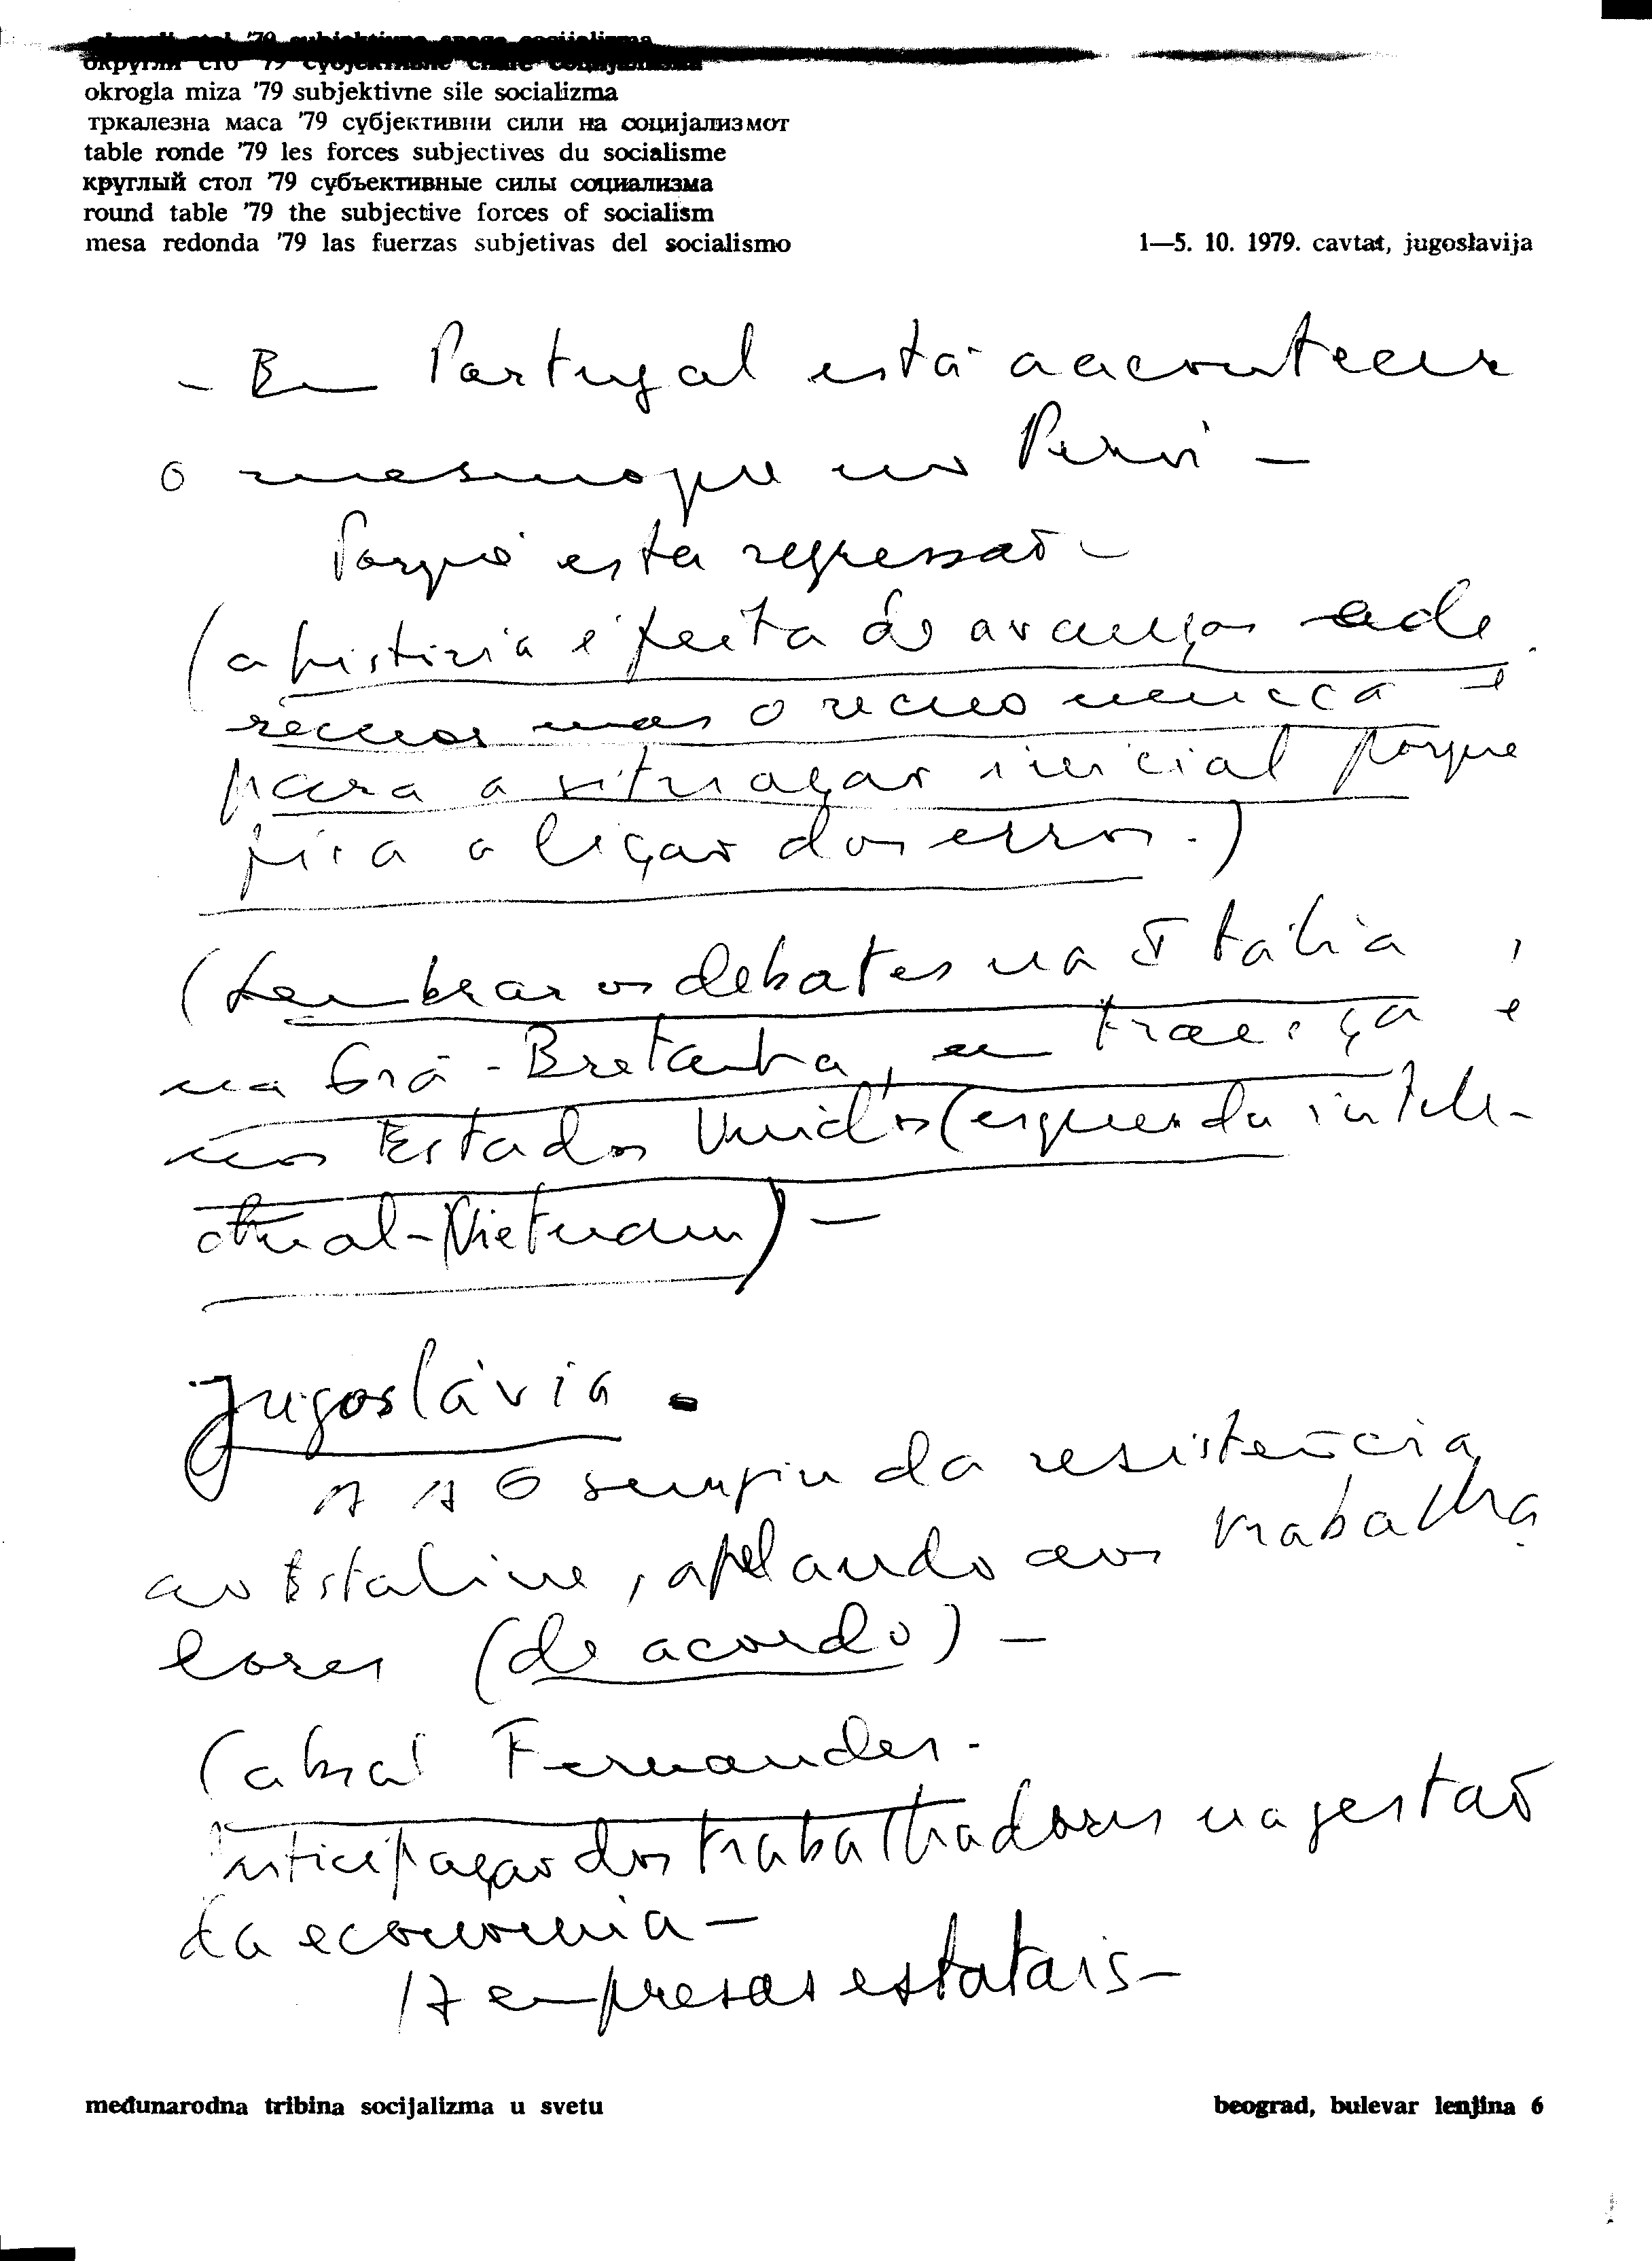 okrugli stol '79 subjektivne snage socijalizma
округли сто '79 субјективне снаге социјализма
okrogla miza '79 subjektivne sile socializma
тркалезна маса '79 субјективни сили на социјализмот
table ronde '79 les forces subjectives du socialisme
круглый стол '79 субъективные силы социализма
round table '79 the subjective forces of socialism
mesa redonda '79 las fuerzas subjetivas del socialismo
1—5. 10. 1979. cavtat, jugoslavija
- Em Portugal está a acontecer
o mesmo que no Peru -
Porquê esta regressão -
(a história é feita de avanços e de
recuos mas o recuo nunca é
para a situação inicial porque
fica a lição dos erros.)
(Lembrar os debates na Itália,
na Grã-Bretanha, em França e
nos Estados Unidos (esquerda intele-
ctual-Vietnam) -
Jugoslávia.
A AG da resistência
ao Estaline, apelando aos trabalha
dores (de acordo) -
Cabral Fernandes.
Participação dos trabalhadores na gestão
da economia -
17 empresas estatais -
međunarodna tribina socijalizma u svetu
beograd, bulevar lenjina 6